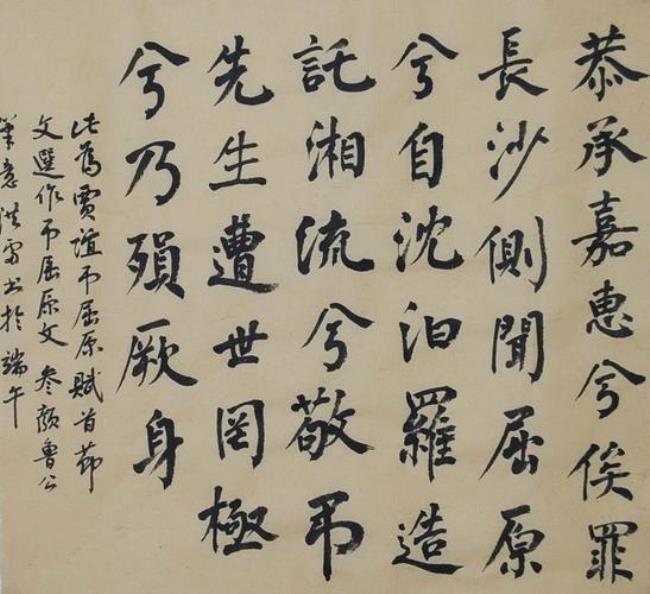 恭承嘉惠兮俟罪
長沙側聞屈原
兮自沈汨羅造
託湘流兮敬吊
先生遭世罔極
兮乃殞厥身
此為賈誼吊屈原賦首節
文選作吊屈原文 參顏魯公
筆意 洪 書於端午